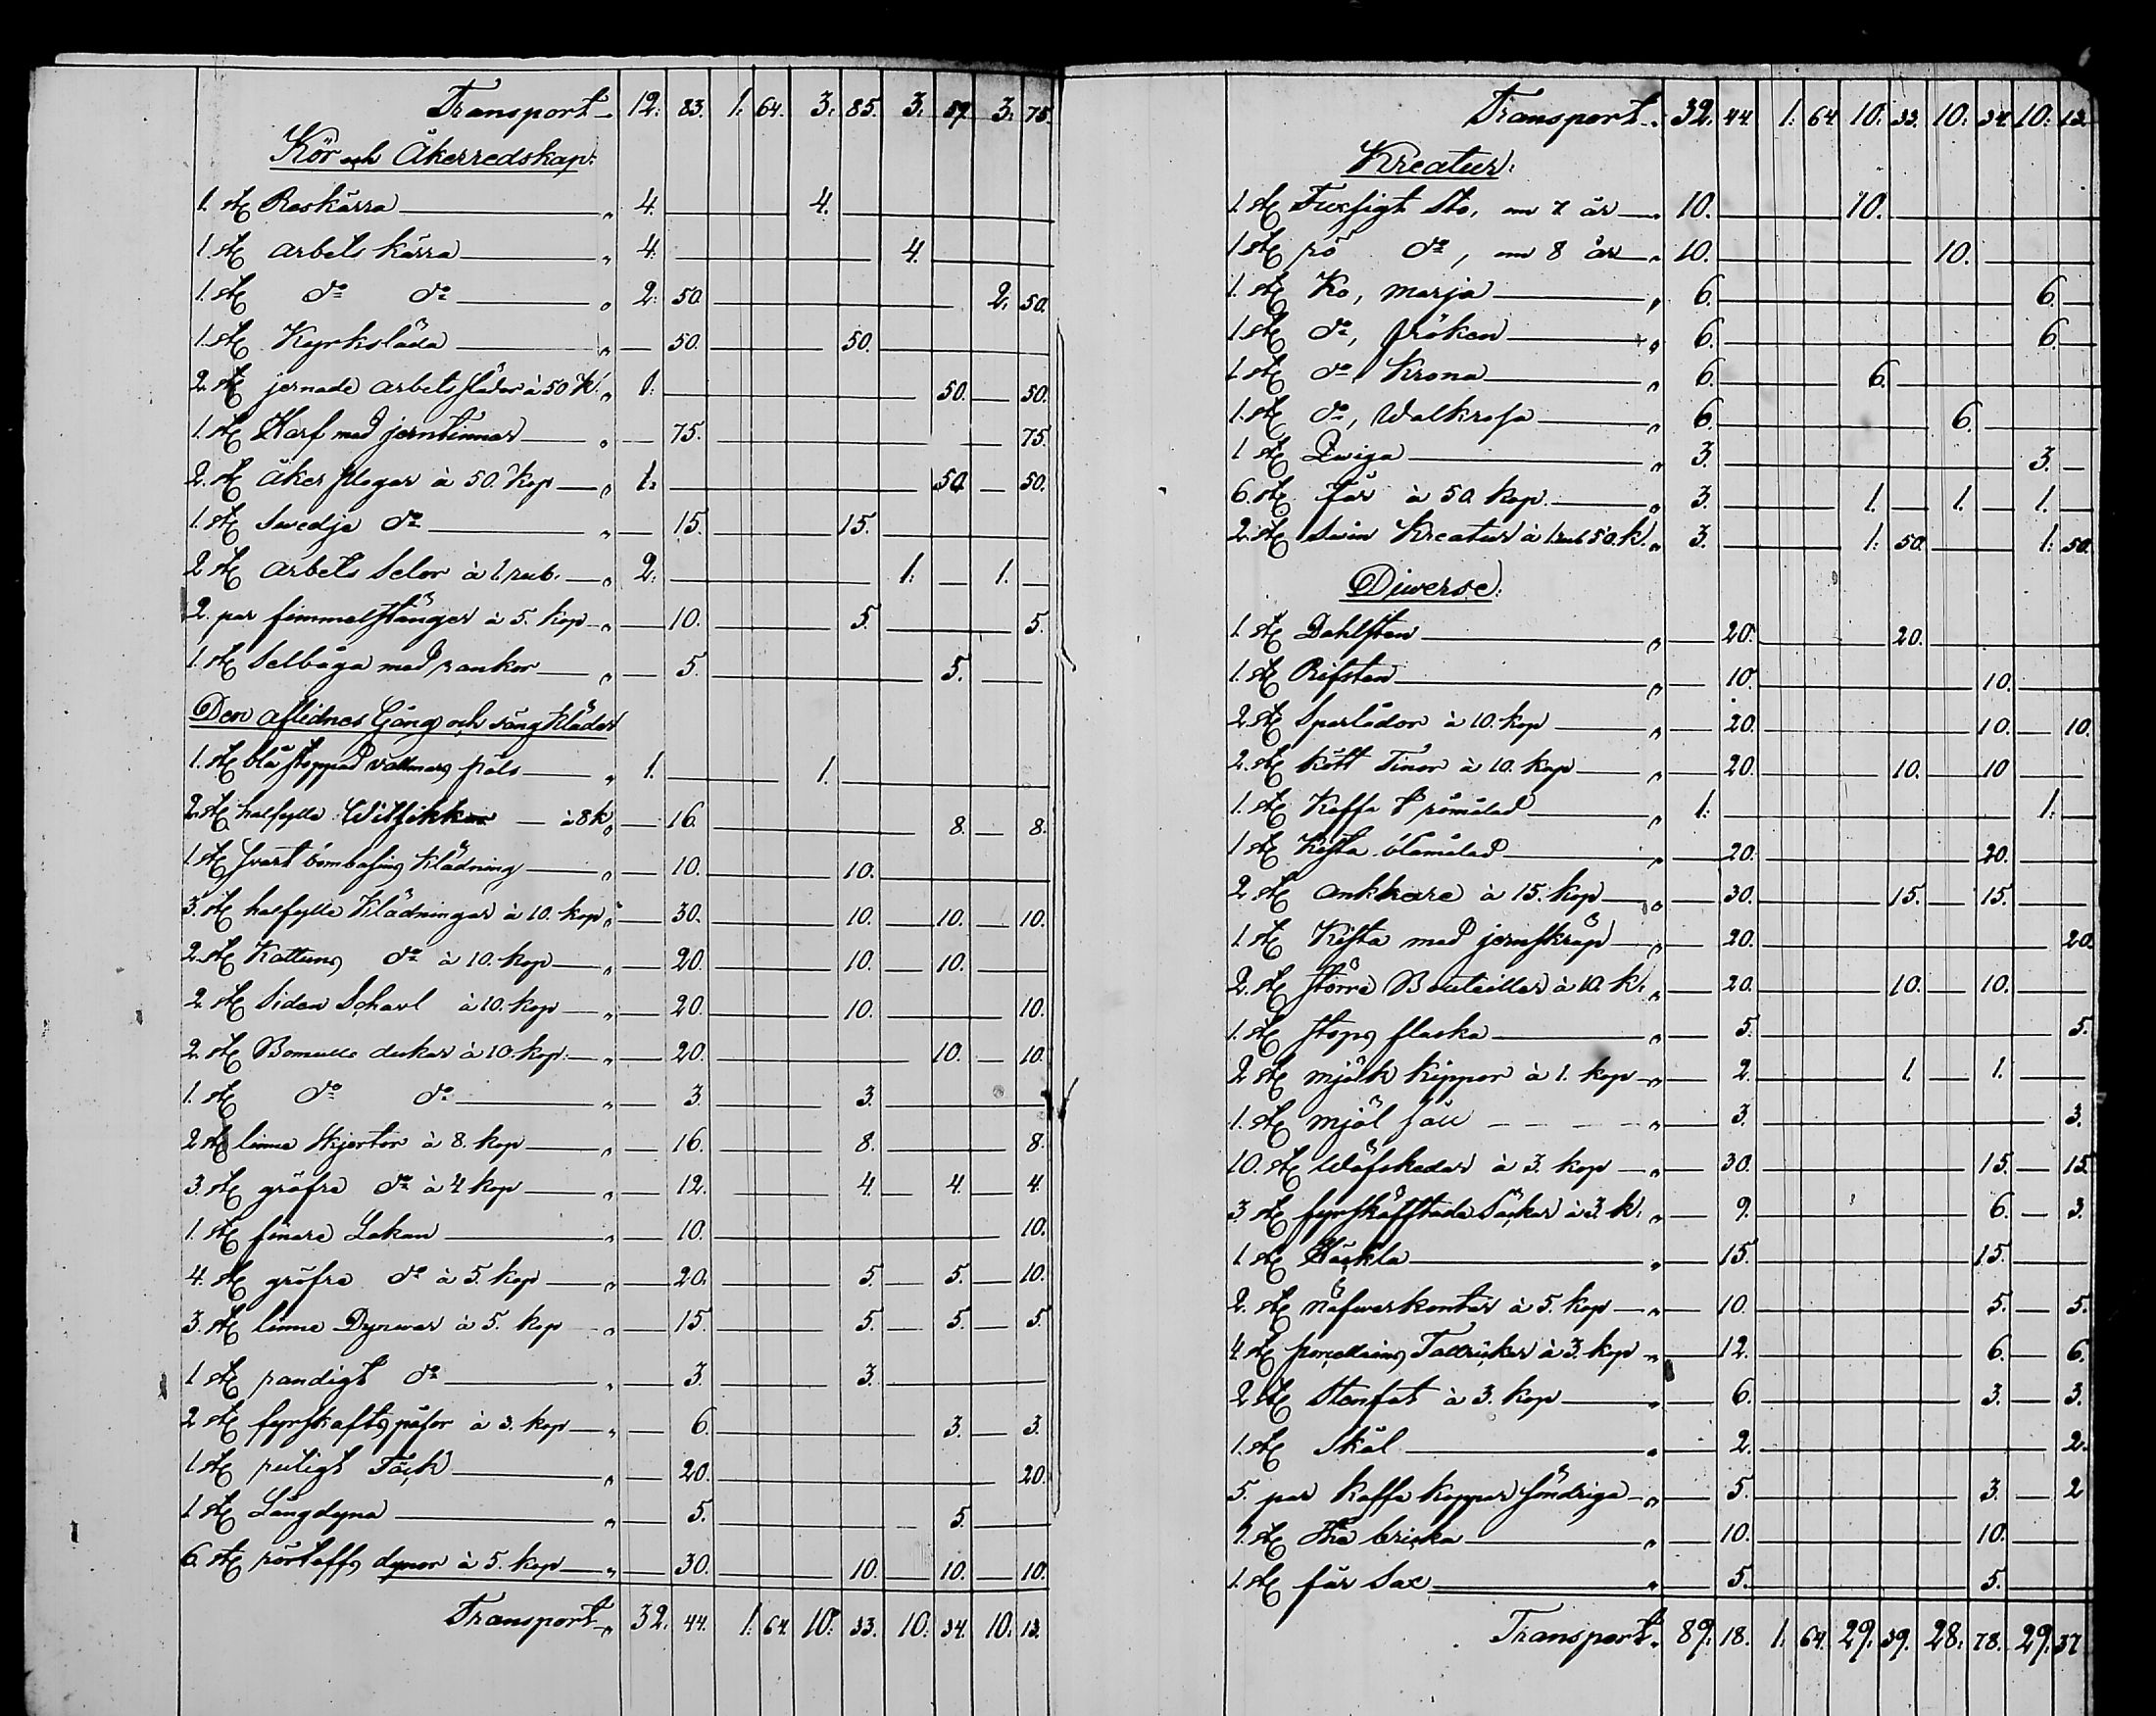 Transport 12. 83. 1. 64. 3. 85. 3. 59. 3. 75.
Kör och Åkerredskap:
1. st Reskärra " 4. 4.
1. st arbets kärra " 4. 4.
1. st do do " 2. 50. 2. 50.
1. st Kyrksläda " 50. 50.
2. st jernade arbets slädor à 50 K. " 1. 50. 50.
1. st Harf med jerntinnar " 75. 75.
2. st åker plogar à 50. kop " 1. 50. 50.
1. st Swedje do " 15. 15.
2 st arbets Selor à 1. rub. " 2. 1. 1.
2. par fimmelstänger à 5. kop " 10. 5. 5.
1. st Selbåga med rankor " 5. 5.
Den aflidnes Gång och sängkläder
1. st blå stoppad vallmars päls " 1. 1.
2. st halfylle à 8 k. " 16. 8. 8.
1 st svart bombasins Klädning " 10. 10.
3. st halfylle Klädningar à 10. kop " 30. 10. 10. 10.
2. st Kattuns do à 10. kop " 20. 10. 10.
2 st Siden Schavl à 10. kop " 20. 10. 10.
2. st Bomulls dukar à 10. kop. " 20. 10. 10.
1. st do do " 3. 3.
2 st linne Skjortor à 8. kop " 16. 8. 8.
3. st gröfre do à 4 kop " 12. 4. 4. 4.
1. st finare Lakan " 10. 10.
4. st gröfre do à 5. kop " 20. 5. 5. 10.
3. st linne Dynwar à 5. kop " 15. 5. 5. 5.
1 st randigt do " 3. 3.
2 st fyrskafts påsor à 3. kop " 6. 3. 3.
1 st rutigt Täck " 20. 20.
1 st Långdyna " 5. 5.
6. st dynor à 5. kop " 30. 10. 10. 10.
Transport " 32. 44. 1. 64. 10. 33. 10. 34. 10. 13.
Transport 32. 44. 1. 64 10. 33. 10. 34. 10. 13
Kreatur:
1. st Fuxsigt Sto, om 7 år " 10. 10.
1. st rö do, om 8 år " 10. 10.
1. st Ko, Marja " 6. 6.
1. st do, Fröken " 6. 6.
1. st do, Krona " 6. 6.
1. st do, Walkrosa " 6. 6.
1 st Qwiga " 3. 3.
6. st får à 50. kop. " 3. 1. 1. 1.
2. st Swin Kreatur à 1 rub 50. K. " 3. 1. 50. 1. 50.
Diwerse:
1. st Dahlsten " 20. 20.
1. st Rifsten " 10. 10.
2. st Sparlådor à 10. kop " 20. 10. 10.
2. st kött Tinor à 10. kop " 20. 10. 10
1. st Koffert römålad " 1. 1.
1 st Kista blåmålad " 20. 20.
2 st ankkare à 15. kop " 30. 15. 15.
1. st Kista med jernskrap " 20. 20.
2. st större Bouteiller à 10. k. " 20. 10. 10.
1. st stops flaska " 5. 5.
2 st mjölk kippor à 1. kop " 2. 1. 1.
1. st mjöl såll " 3. 3.
10. st Wäfskedar à 3. kop " 30. 15. 15
3. st fyrskäfftade Säckar à 3. k. " 9. 6. 3.
1. st Häckla " 15. 15.
2. st näfwerkontar à 5. kop " 10. 5. 5.
4 st porcellains Tallrickar à 3. kop " 12. 6. 6.
2 st Stenfat à 3. kop " 6. 3. 3.
1. st Skål " 2. 2.
5. par kaffe koppar söndriga " 5. 3. 2
1. st The bricka " 10. 10.
1. st får Sax " 5. 5.
Transport " 89. 18. 1. 64. 29. 39. 28. 78. 29. 37